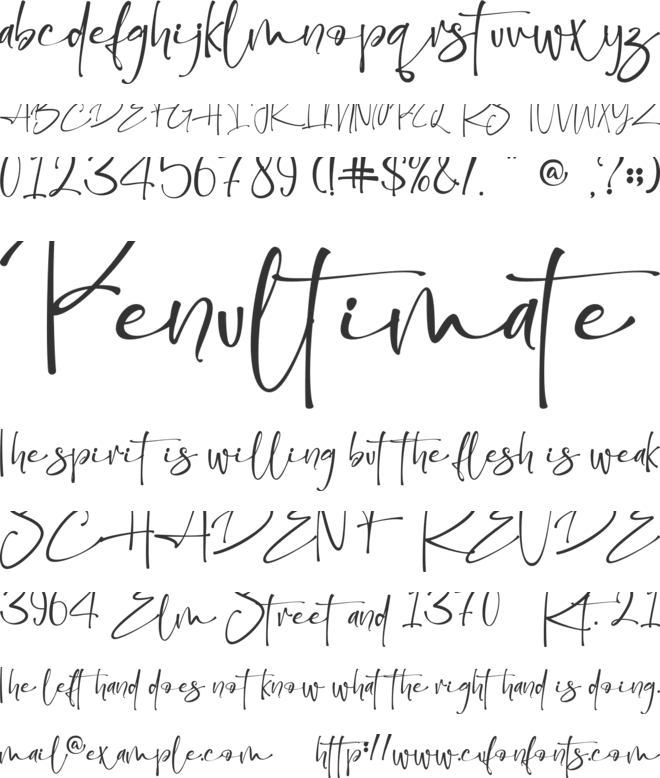 abcdefghijklmnopqrstuvwxyz
ABCDEFGHIJKLMNOPQRSTUVWXYZ
0123456789 (!#$%&/. " @ ,?:;)
Penultimate
The spirit is willing but the flesh is weak
SCHADENFREUDE
3964 Elm Street and 1370 Rt. 21
The left hand does not know what the right hand is doing.
mail@example.com http://www.cufonfonts.com